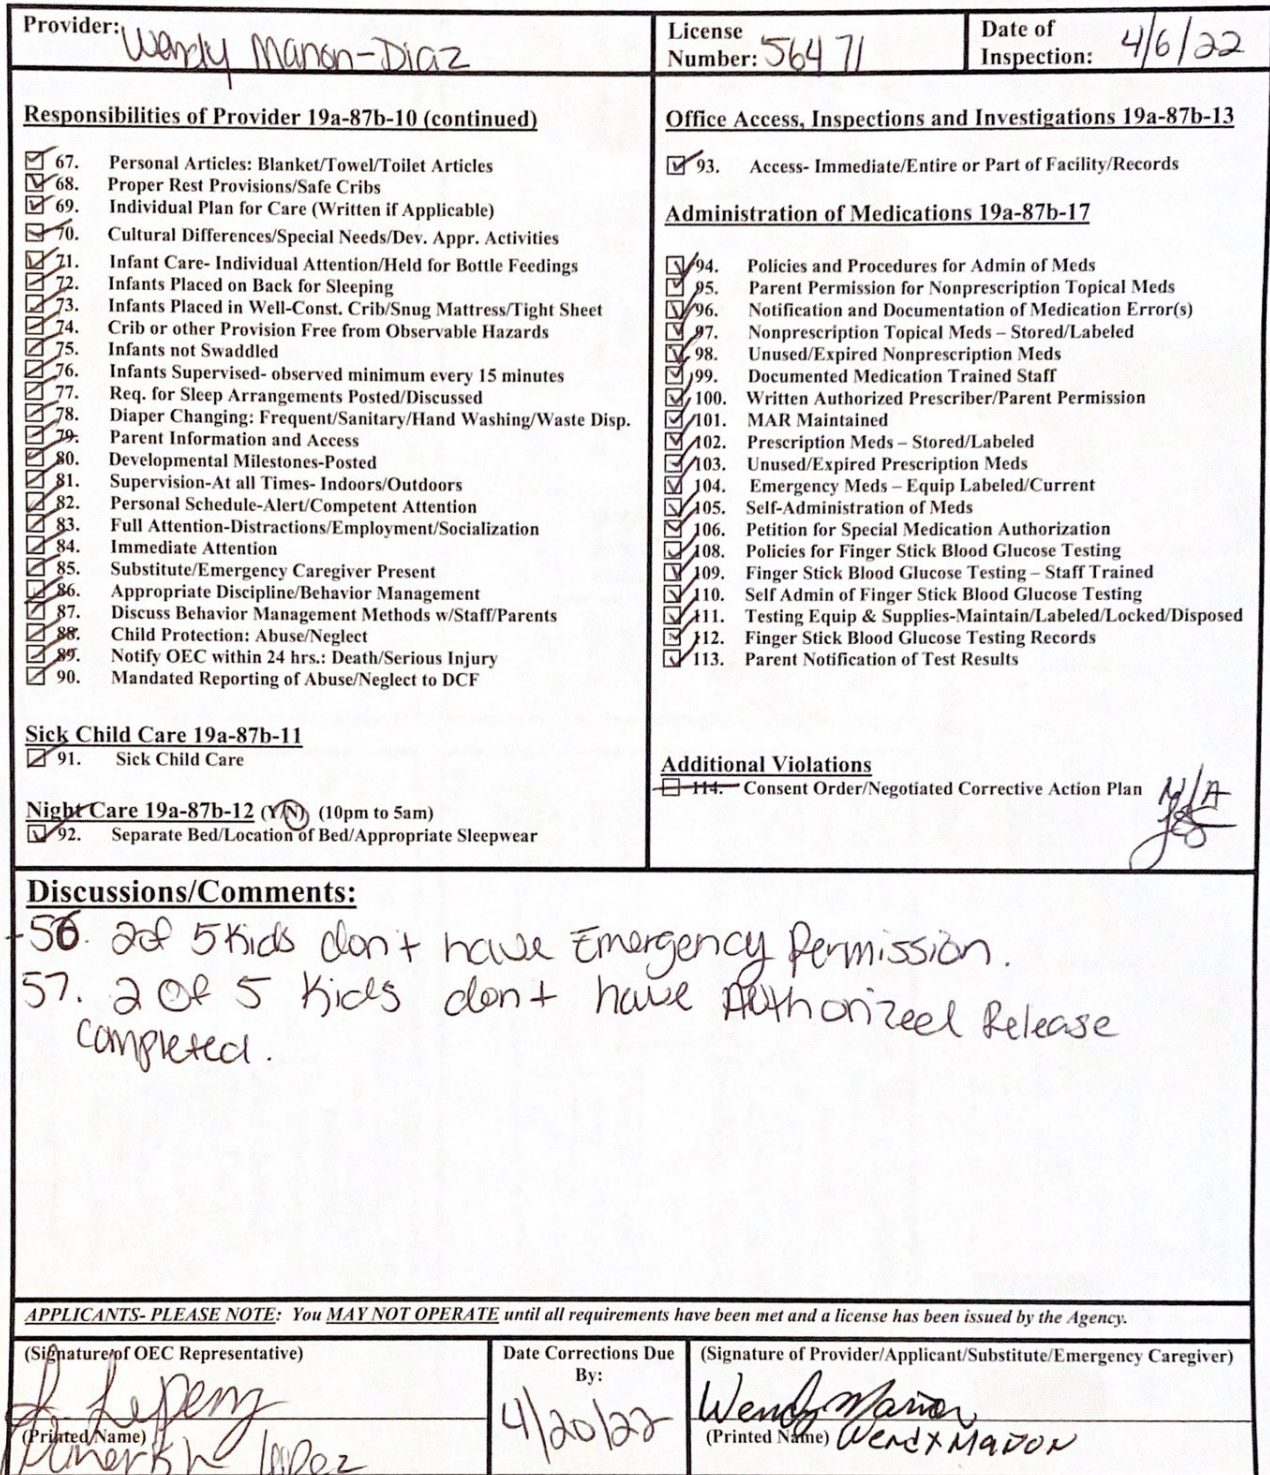 Provider: Wendy Manon-Diaz
License Number: 56471
Date of Inspection: 4/6/22
Responsibilities of Provider 19a-87b-10 (continued)
67. Personal Articles: Blanket/Towel/Toilet Articles
68. Proper Rest Provisions/Safe Cribs
69. Individual Plan for Care (Written if Applicable)
70. Cultural Differences/Special Needs/Dev. Appr. Activities
71. Infant Care- Individual Attention/Held for Bottle Feedings
72. Infants Placed on Back for Sleeping
73. Infants Placed in Well-Const. Crib/Snug Mattress/Tight Sheet
74. Crib or other Provision Free from Observable Hazards
75. Infants not Swaddled
76. Infants Supervised- observed minimum every 15 minutes
77. Req. for Sleep Arrangements Posted/Discussed
78. Diaper Changing: Frequent/Sanitary/Hand Washing/Waste Disp.
79. Parent Information and Access
80. Developmental Milestones-Posted
81. Supervision-At all Times- Indoors/Outdoors
82. Personal Schedule-Alert/Competent Attention
83. Full Attention-Distractions/Employment/Socialization
84. Immediate Attention
85. Substitute/Emergency Caregiver Present
86. Appropriate Discipline/Behavior Management
87. Discuss Behavior Management Methods w/Staff/Parents
88. Child Protection: Abuse/Neglect
89. Notify OEC within 24 hrs.: Death/Serious Injury
90. Mandated Reporting of Abuse/Neglect to DCF
Sick Child Care 19a-87b-11
91. Sick Child Care
Night Care 19a-87b-12 (Y/N) (10pm to 5am)
92. Separate Bed/Location of Bed/Appropriate Sleepwear
Office Access, Inspections and Investigations 19a-87b-13
93. Access- Immediate/Entire or Part of Facility/Records
Administration of Medications 19a-87b-17
94. Policies and Procedures for Admin of Meds
95. Parent Permission for Nonprescription Topical Meds
96. Notification and Documentation of Medication Error(s)
97. Nonprescription Topical Meds – Stored/Labeled
98. Unused/Expired Nonprescription Meds
99. Documented Medication Trained Staff
100. Written Authorized Prescriber/Parent Permission
101. MAR Maintained
102. Prescription Meds – Stored/Labeled
103. Unused/Expired Prescription Meds
104. Emergency Meds – Equip Labeled/Current
105. Self-Administration of Meds
106. Petition for Special Medication Authorization
108. Policies for Finger Stick Blood Glucose Testing
109. Finger Stick Blood Glucose Testing – Staff Trained
110. Self Admin of Finger Stick Blood Glucose Testing
111. Testing Equip & Supplies-Maintain/Labeled/Locked/Disposed
112. Finger Stick Blood Glucose Testing Records
113. Parent Notification of Test Results
Additional Violations
114. Consent Order/Negotiated Corrective Action Plan N/A
Discussions/Comments:
-56. 2 of 5 Kids don't have Emergency Permission.
57. 2 of 5 Kids don't have Authorized Release
completed.
APPLICANTS- PLEASE NOTE: You MAY NOT OPERATE until all requirements have been met and a license has been issued by the Agency.
(Signature of OEC Representative)
(Printed Name) Lopez
Date Corrections Due By:
4/20/22
(Signature of Provider/Applicant/Substitute/Emergency Caregiver)
Wendy Manon
(Printed Name) Wendy MaNON